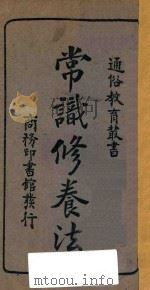 通俗教育叢書
常識修養法
商務印書館發行
mtoou.info